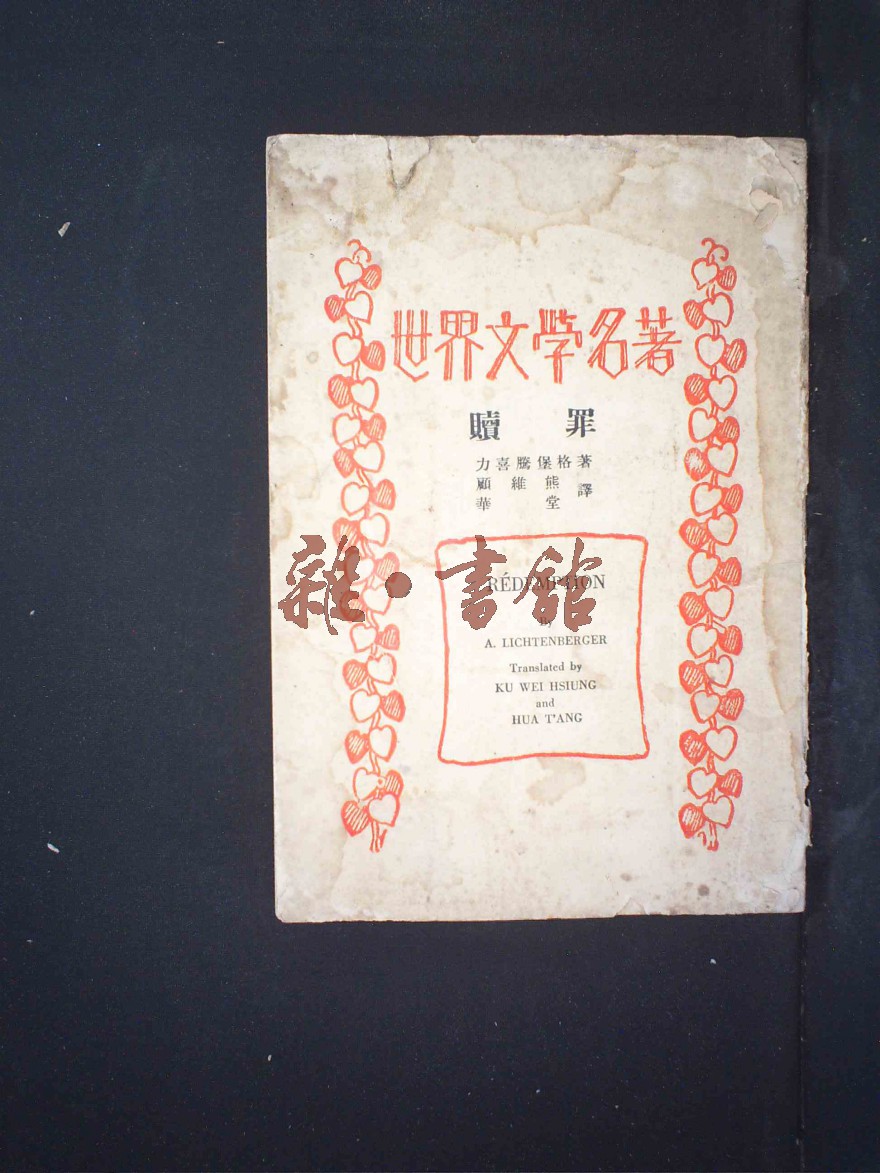 世界文學名著
贖罪
力喜騰堡格著
顧維熊
華堂
譯
雜·書館
RÉDEMPTION
By
A. LICHTENBERGER
Translated by
KU WEI HSIUNG
and
HUA T'ANG